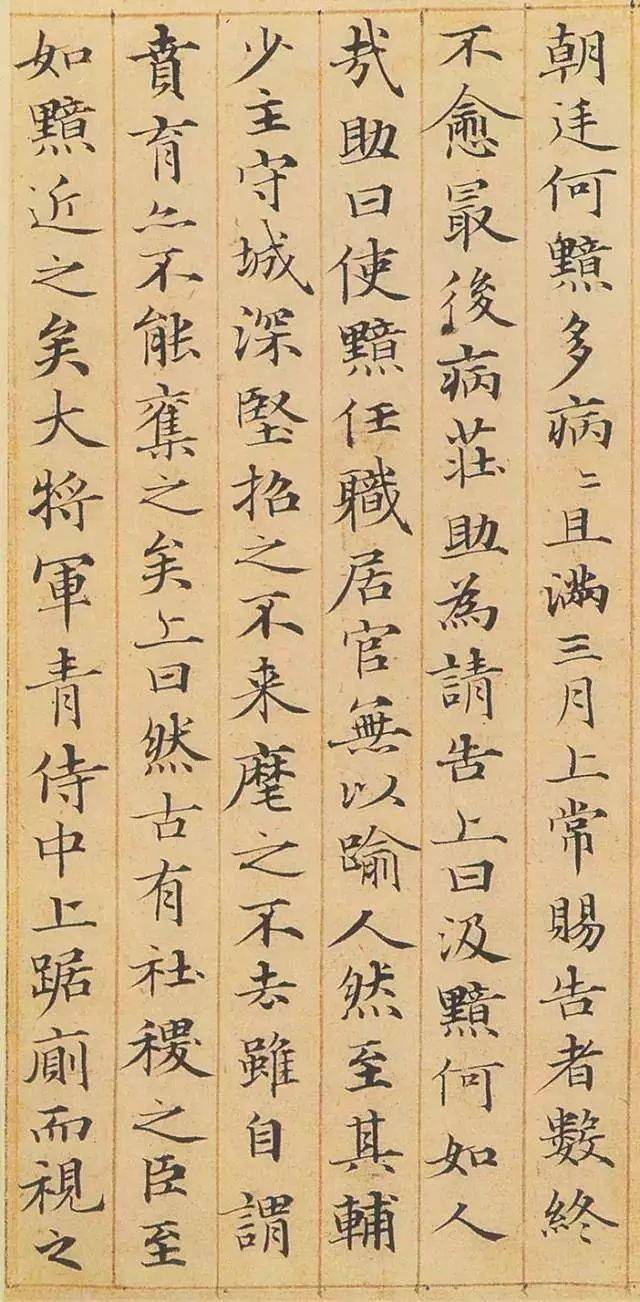 朝廷何黯多病〻且满三月上常賜告者數終
不愈最後病莊助為請告上曰汲黯何如人
㢤助曰使黯任職居官無以踰人然至其輔
少主守城深堅招之不来麾之不去雖自謂
賁育亦不能奪之矣上曰然古有社稷之臣至
如黯近之矣大将軍青侍中上踞廁而視之